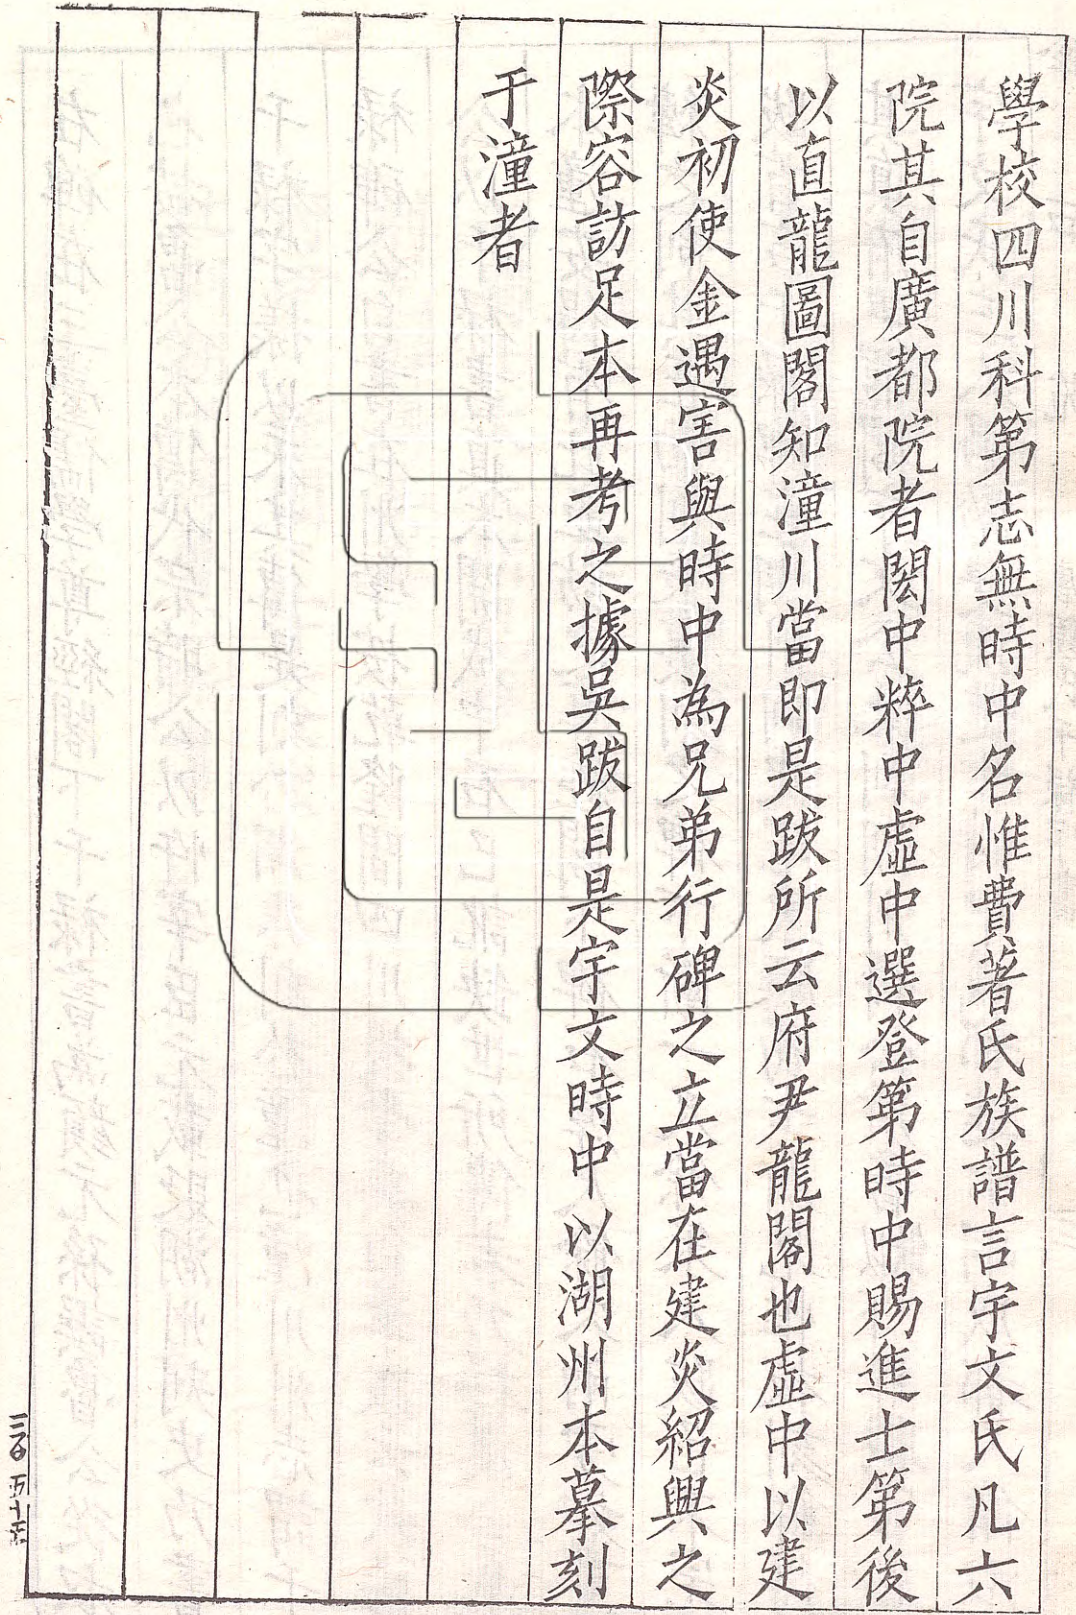 學校四川科第志無時中名惟費著氏族譜言宇文氏凡六
院其自廣都院者閎中粹中虛中選登第時中賜進士第後
以直龍圖閣知潼川當即是跋所云府尹龍閣也虛中以建
炎初使金遇害與時中為兄弟行碑之立當在建炎紹興之
際容訪足本再考之據吳跋自是宇文時中以湖州本摹刻
于潼者